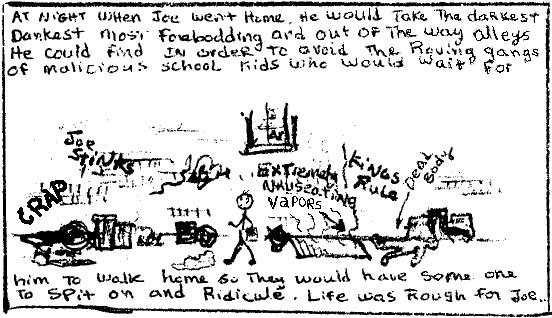 AT NIGHT WHEN JOE WENT HOME, HE WOULD TAKE THE DARKEST
DANKEST MOST FOREBODDING AND OUT OF THE WAY ALLEYS
HE COULD FIND IN ORDER TO AVOID THE ROVING GANGS
OF MALICIOUS SCHOOL KIDS WHO WOULD WAIT FOR
JOE
STINKS
CRAP
EXTREMELY
NAUSEATING
VAPORS
KINGS
RULE
DEAD
BODY
HIM TO WALK HOME SO THEY WOULD HAVE SOME ONE
TO SPIT ON AND RIDICULE. LIFE WAS ROUGH FOR JOE..